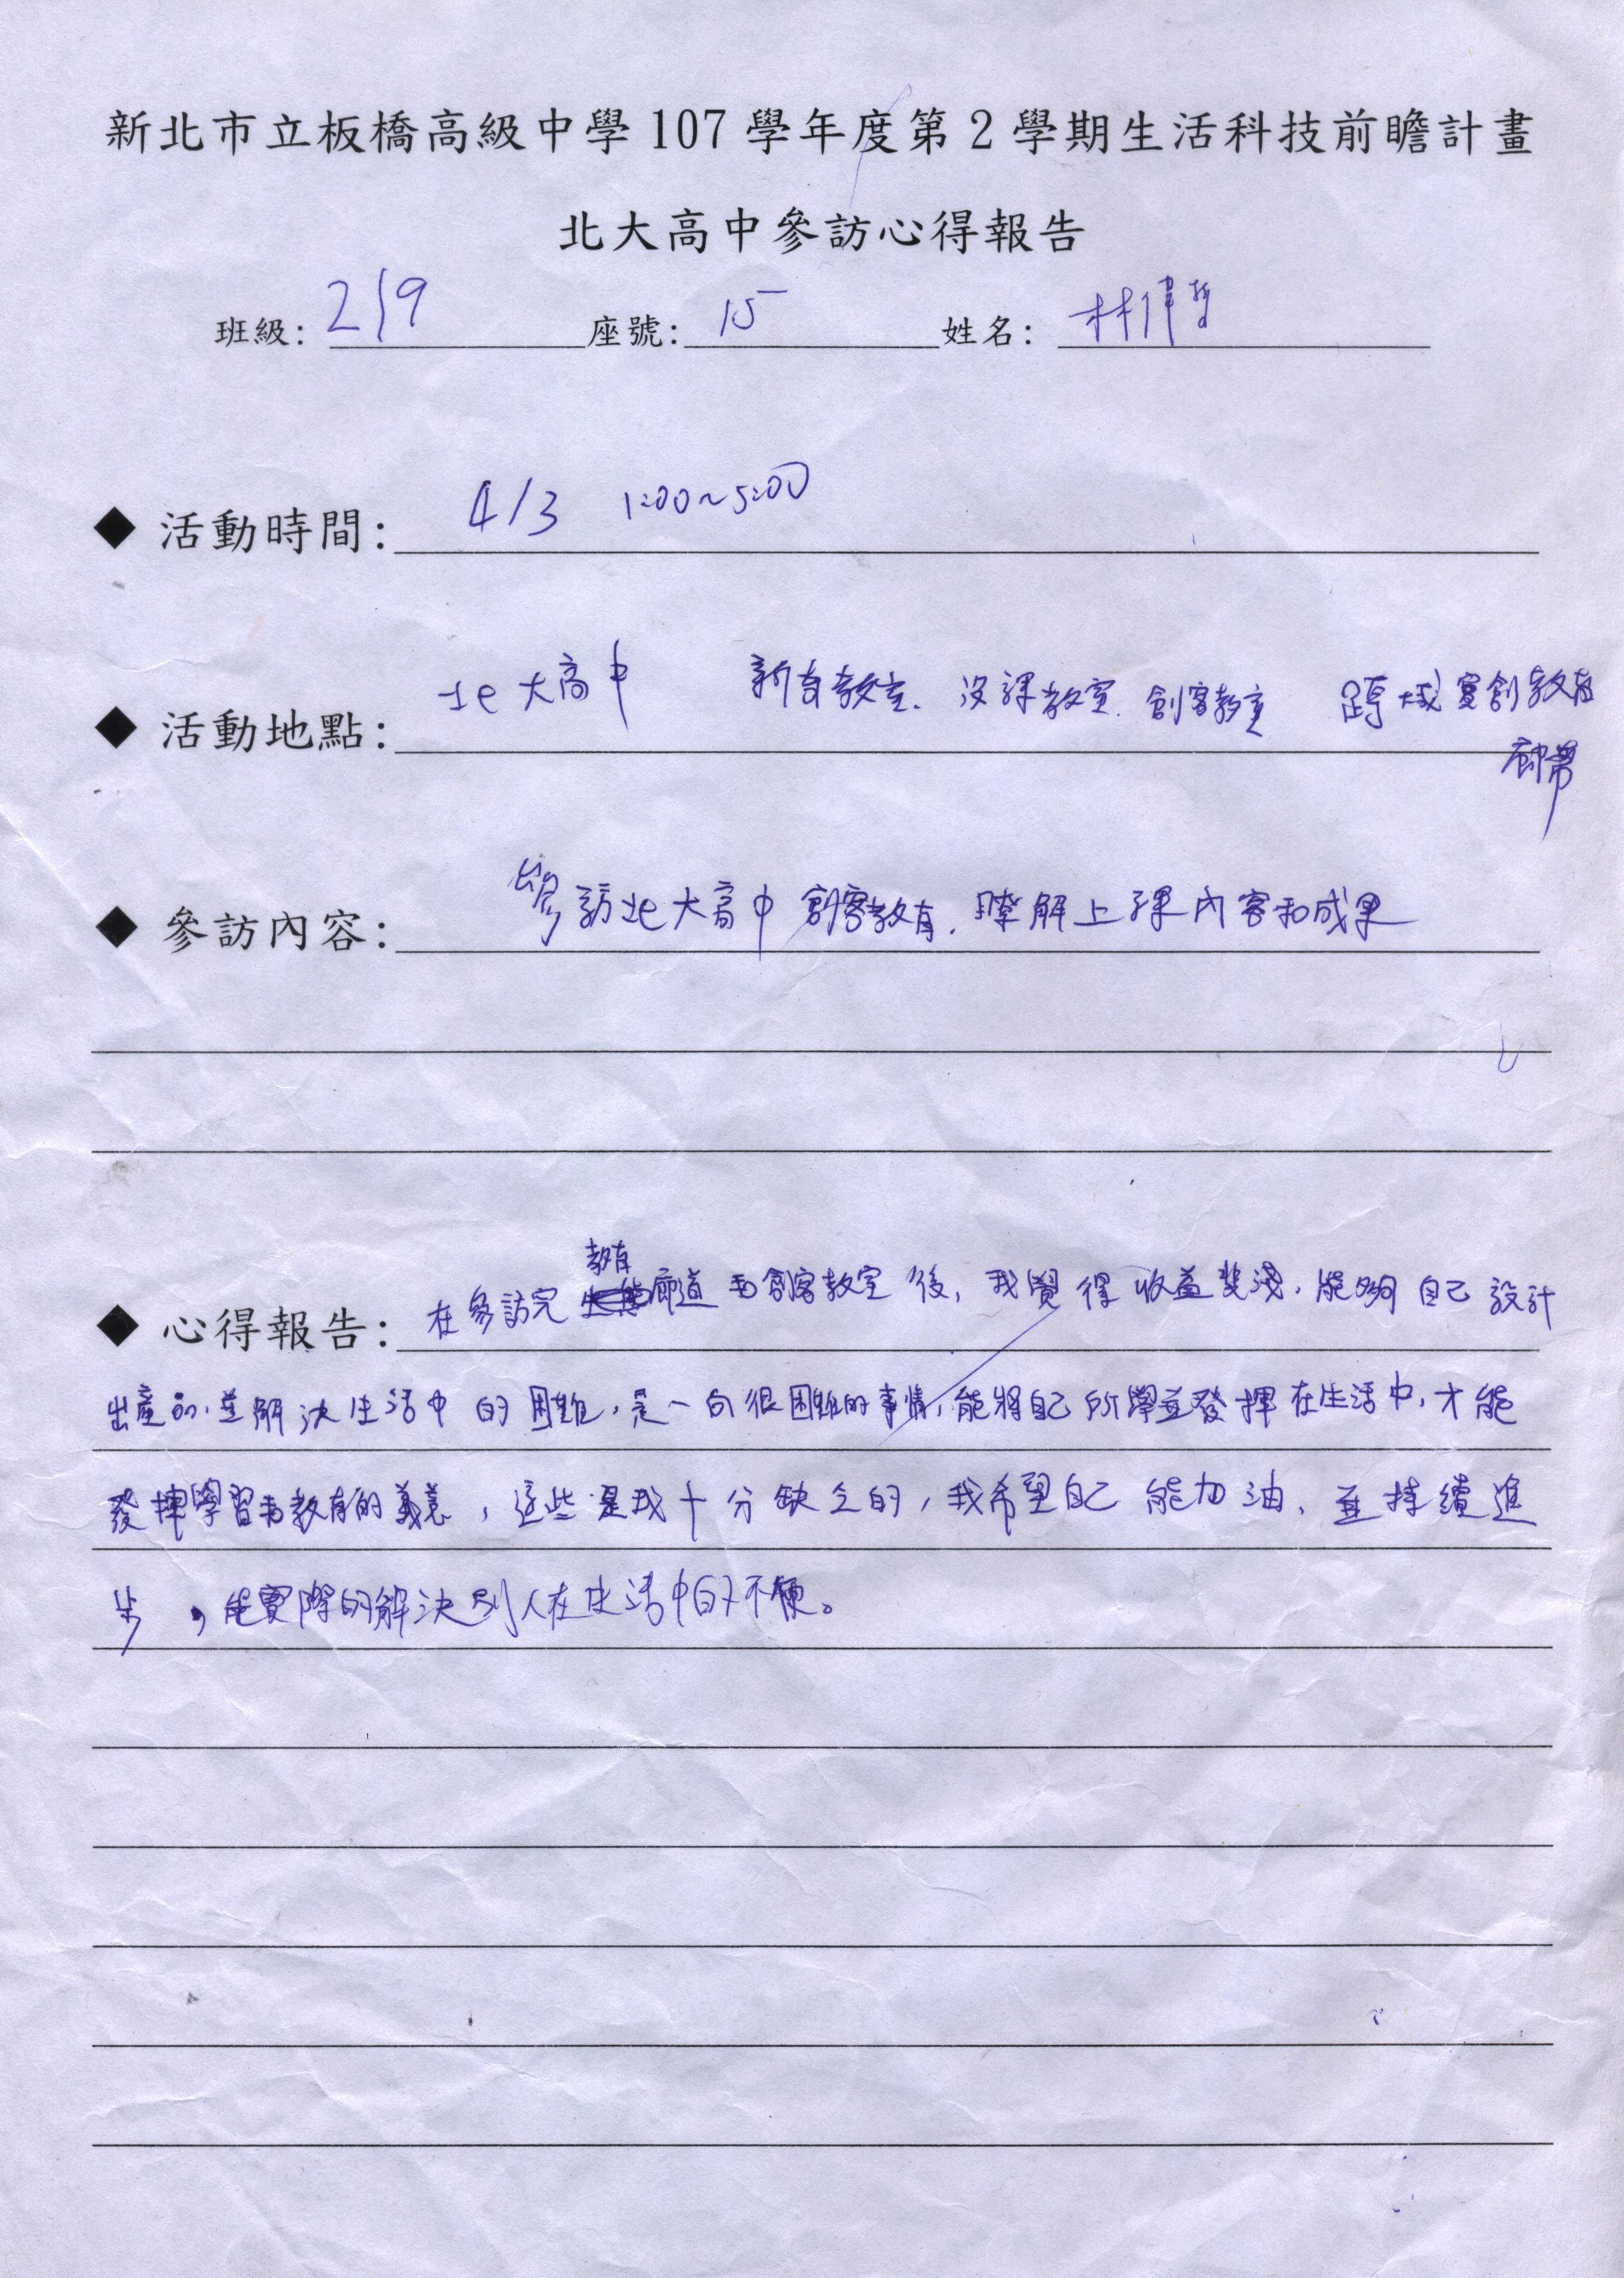 新北市立板橋高級中學107學年度第2學期生活科技前瞻計畫
北大高中參訪心得報告
班級: 219 座號: 15 姓名: 林偉哲
◆ 活動時間: 4/3 1:00~5:00
◆ 活動地點: 北大高中 教室. 沒課教室. 創客教室 跨域實創教育
廊帶
◆ 參訪內容: 參訪北大高中創客教育.瞭解上課內容和成果
教育
◆ 心得報告: 在參訪完廊道與創客教室後,我覺得收益斐淺,能夠自己設計
出產品,並解決生活中的困難,是一向很困難的事情,能將自己所學並發揮在生活中,才能
發揮學習與教育的義意,這些是我十分缺乏的,我希望自己能加油,並持續進
步,能實際的解決別人在生活中的不便。